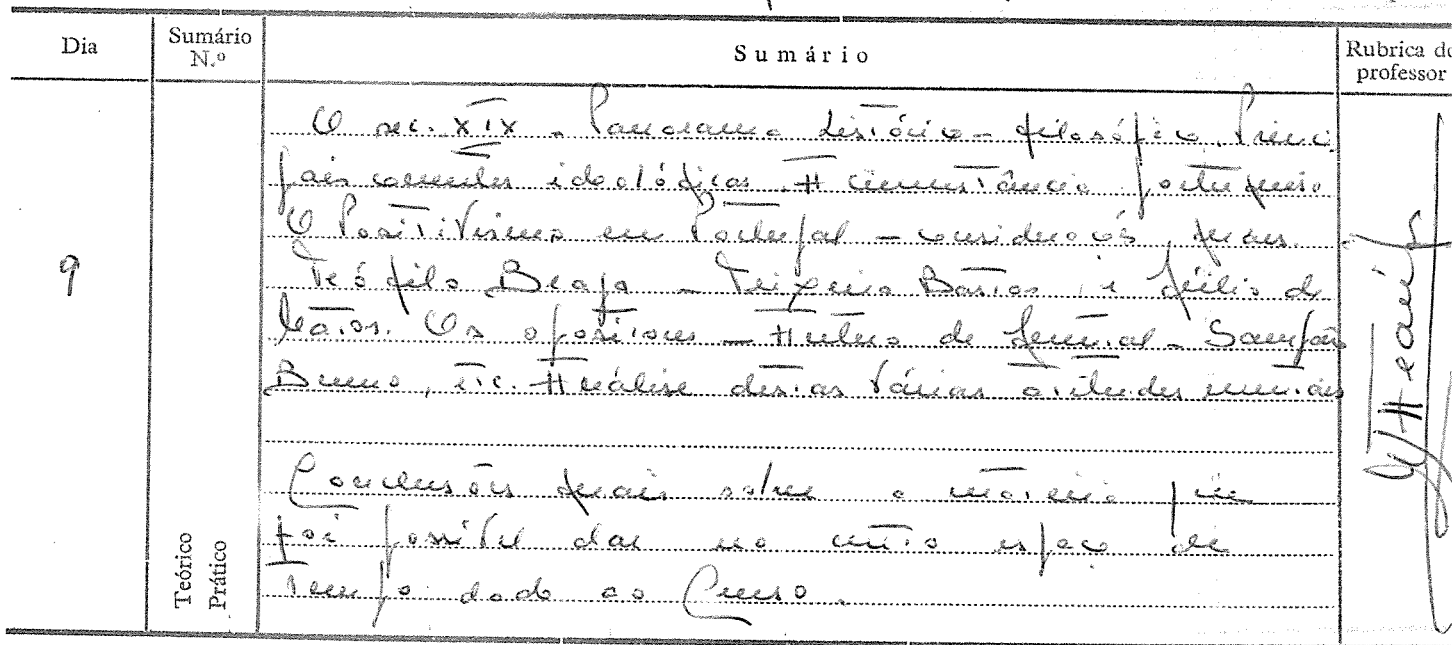 Dia
Sumário N.º
Sumário
Rubrica do professor
9
O séc. XIX - Panorama histórico-filosófico. Princi
pais correntes ideológicas. A circunstância portuguesa
O Positivismo em Portugal - considerações gerais.
Teófilo Braga - Teixeira Bastos e Júlio de
Matos. Os opositores - Antero de Quental - Sampaio
Bruno, etc. Análise destas várias atitudes mentais
Conclusões gerais sobre a matéria que
foi possível dar no curto espaço de
tempo dado ao Curso.
Teórico
Prático